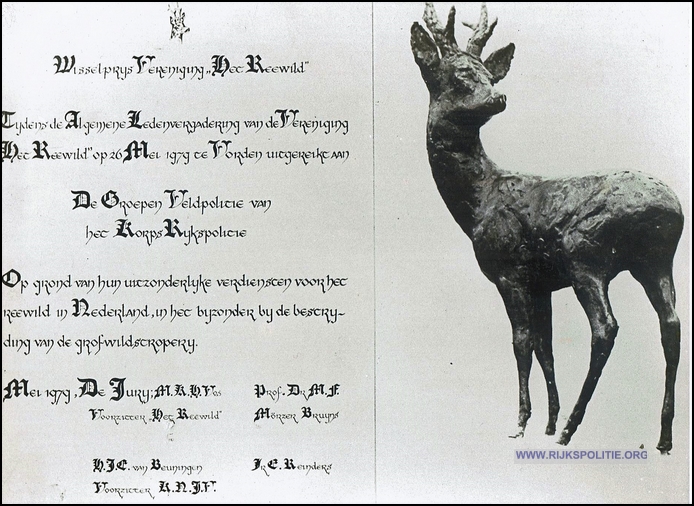 Wisselprys Vereniging „Het Reewild"
Tydens de Algemene Ledenvergadering van de Vereniging
Het Reewild" op 26 Mei 1979 te Vorden uitgereikt aan
De Groepen Veldpolitie van
het Korps Rykspolitie
Op grond van hun uitzonderlyke verdiensten voor het
reewild in Nederland, in het byzonder by de bestry-
ding van de grofwildstropery.
Mei 1979, De Jury; M.K.H. Vos
Voorzitter „Het Reewild"
Prof. Dr M.F.
Mörzer Bruyns
H.J.E. van Beuningen
Voorzitter K.N.J.V.
Jr E. Reinders
WWW.RIJKSPOLITIE.ORG